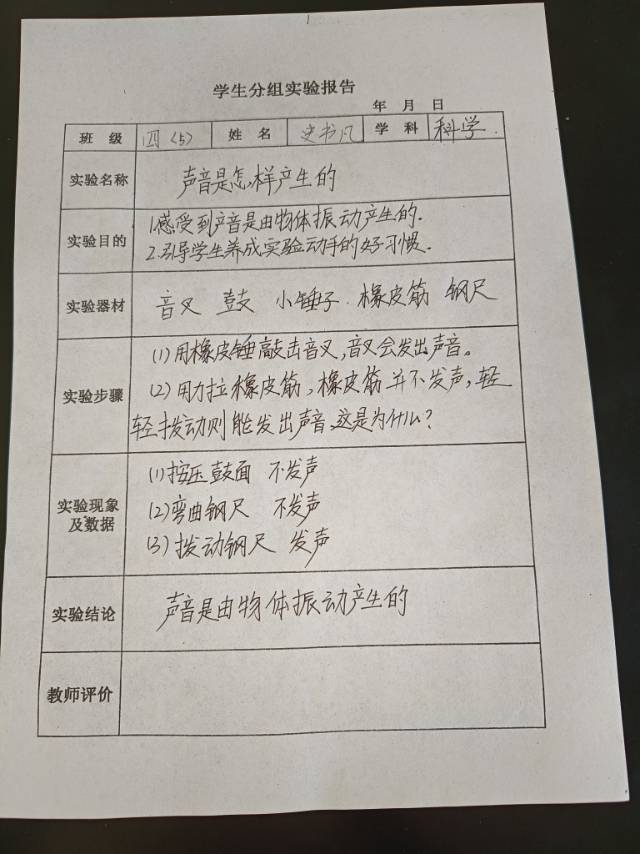 学生分组实验报告
年 月 日
班 级 四（5） 姓 名 史书凡 学 科 科学
实验名称 声音是怎样产生的
实验目的 1.感受到声音是由物体振动产生的.
2.引导学生养成实验动手的好习惯.
实验器材 音叉 鼓 小锤子 橡皮筋 钢尺
实验步骤 （1）用橡皮锤敲击音叉，音叉会发出声音。
（2）用力拉橡皮筋，橡皮筋并不发声，轻
轻拨动则能发出声音，这是为什么？
实验现象
及数据
（1）按压鼓面 不发声
（2）弯曲钢尺 不发声
（3）拨动钢尺 发声
实验结论 声音是由物体振动产生的
教师评价